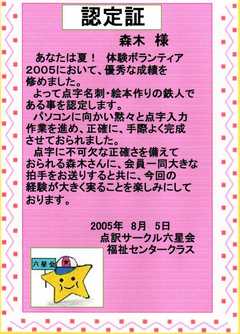 認定証
森木 様
あなたは夏! 体験ボランティア
2005において、優秀な成績を
修めました。
よって点字名刺・絵本作りの鉄人で
ある事を認定します。
パソコンに向かい黙々と点字入力
作業を進め、正確に、手際よく完成
させておられました。
点字に不可欠な正確さを備えて
おられる森木さんに、会員一同大きな
拍手をお送りすると共に、今回の
経験が大きく実ることを楽しみにして
おります。
2005年 8月 5日
点訳サークル六星会
福祉センタークラス
六星会